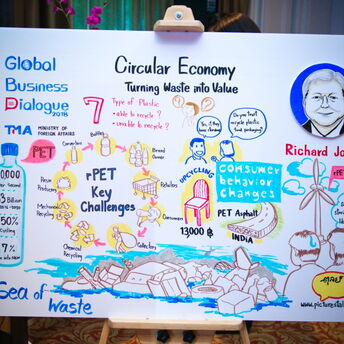 Global
Business
Dialogue
2018
TMA
MINISTRY OF
FOREIGN AFFAIRS
Circular Economy
Turning Waste into Value
7
Type of Plastic
• able to recycle ?
• unable to recycle ?
PET
Convertors
Bottlers
Brand
Owner
Retailers
Consumers
Collectors
Chemical
Recycling
Mechanical
Recycling
Resin
Producers
rPET
Key
Challenges
Do you trust
recycle plastic
UPCYCLING
13000 ฿
Consumer
behavior
changes
PET Asphalt
INDIA
Richard Jo
Billion
50%
7%
Sea of Waste